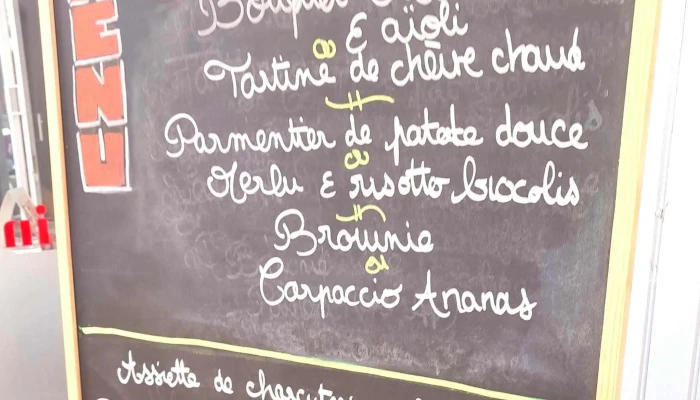 MENU
Bouquet
& aïoli
ou
Tartine de chèvre chaud
Parmentier de patate douce
ou
Merlu & risotto brocolis
Brownie
ou
Carpaccio Ananas
Assiette de